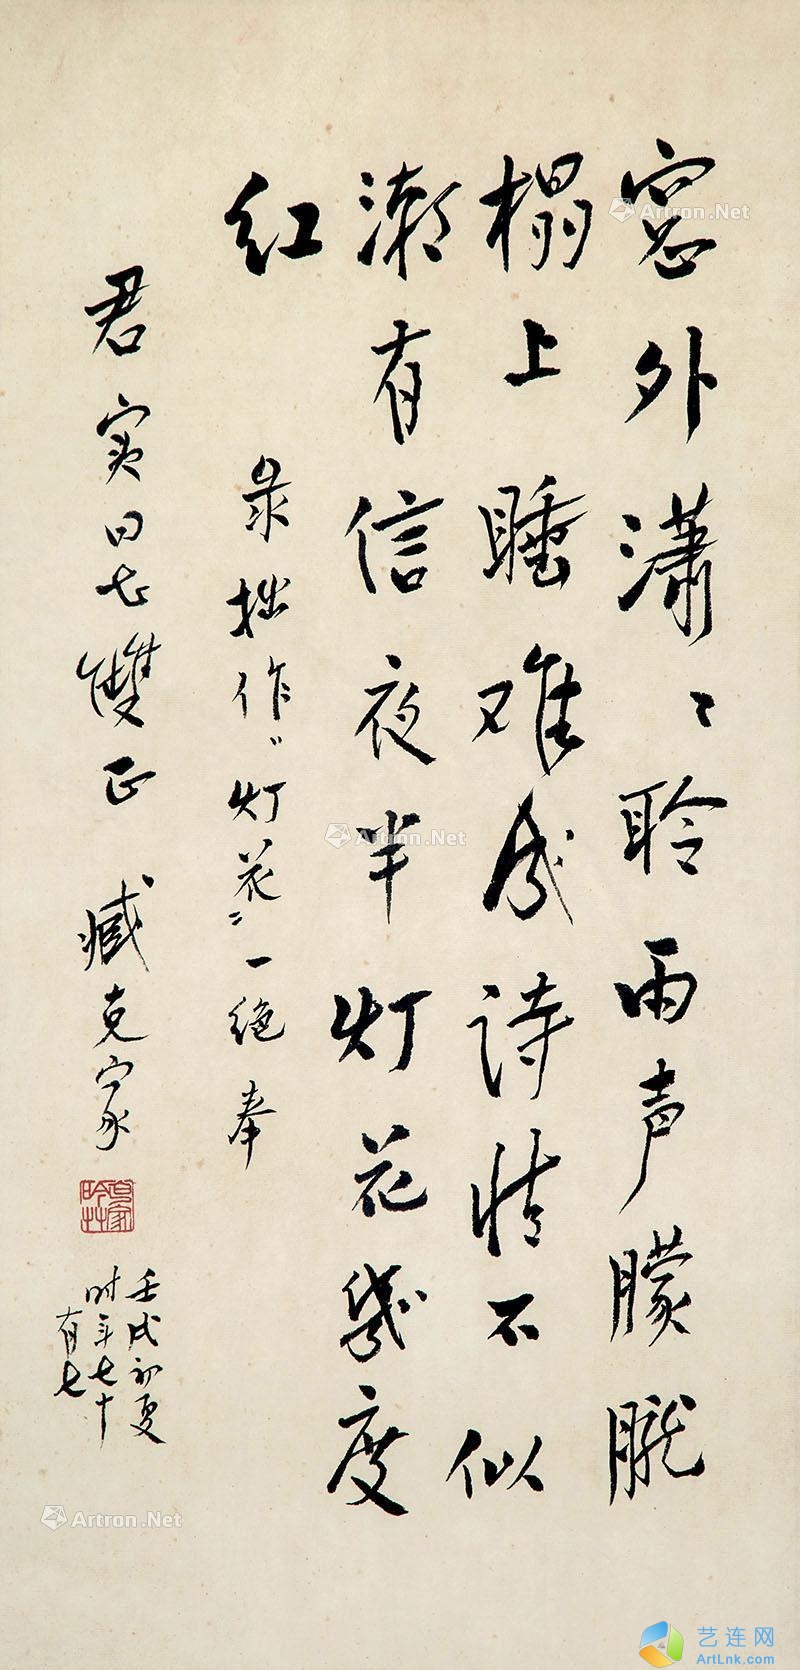 窓外潇〻聆雨声朦胧
榻上睡难成诗情不似
潮有信夜半灯花几度
红 录拙作"灯花"一绝奉
君实同志双正 臧克家
克家吟草
壬戌初夏
时年七十
有七
Artron.Net
Artron.Net
Artron.Net
艺连网
ArtLnk.com